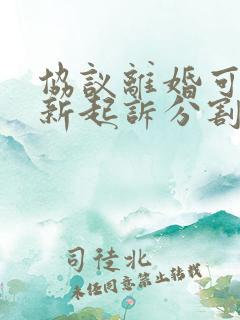 協議離婚可
新起訴分割
司徒北
未經同意禁止轉載